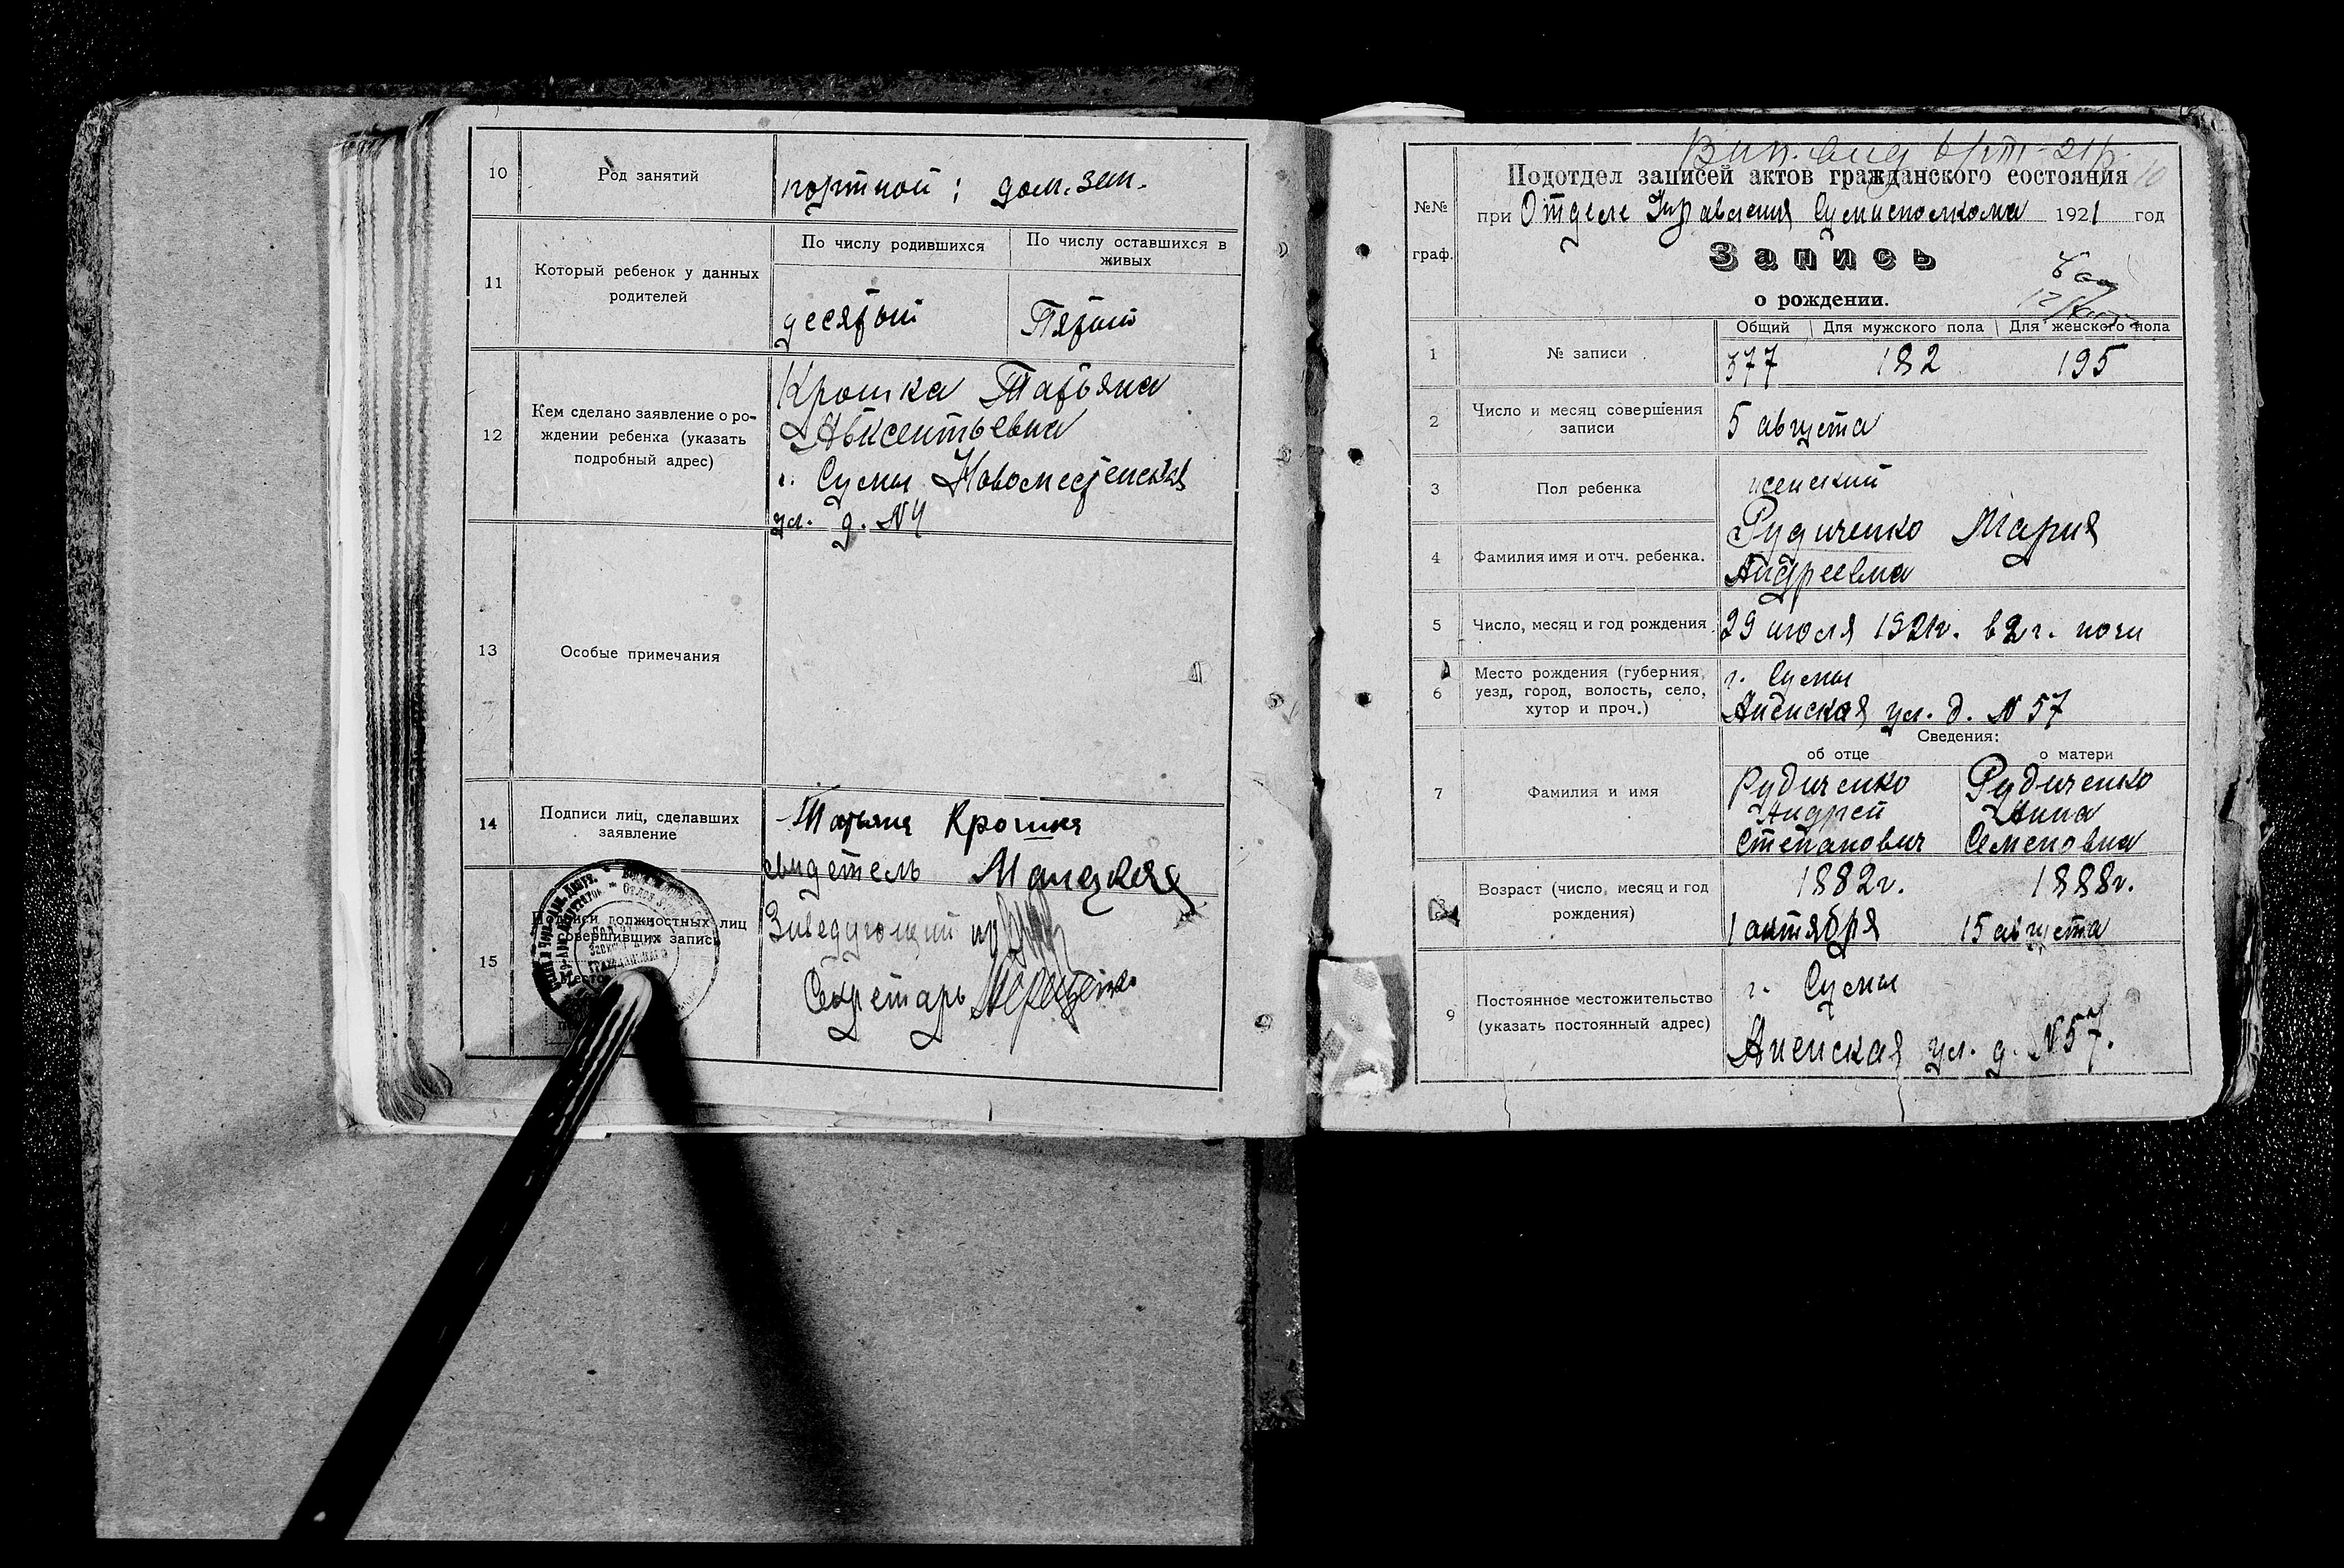 10
Род занятий
портной; дом. зан.
11
Который ребенок у данных
родителей
По числу родившихся
По числу оставшихся в
живых
десятый
Пятый
12
Кем сделано заявление о ро-
ждении ребенка (указать
подробный адрес)
Крошка Татьяна
Авксентьевна
г. Сумы Новоместенская
ул. д. №4
13
Особые примечания
14
Подписи лиц, сделавших
заявление
Татьяна Крошка
свидетель
15
Подписи должностных лиц
совершивших запись
Заведующий
Секретарь
№№
граф.
Подотдел записей актов гражданского состояния
при Отделе Управления Сумисполкома 1921 год
Запись
о рождении.
Общий
Для мужского пола
Для женского пола
1
№ записи
377
182
195
2
Число и месяц совершения
записи
5 августа
3
Пол ребенка
женский
4
Фамилия имя и отч. ребенка.
Рудиченко Мария
Андреевна
5
Число, месяц и год рождения
29 июля 1921г. в 2 ч. ночи
6
Место рождения (губерния,
уезд, город, волость, село,
хутор и проч.)
г. Сумы
Аненская ул. д. №57
Сведения:
об отце
о матери
7
Фамилия и имя
Рудиченко
Андрей
Степанович
Рудиченко
Анна
Семеновна
8
Возраст (число, месяц и год
рождения)
1882г.
1 октября
1888г.
15 августа
9
Постоянное местожительство
(указать постоянный адрес)
г. Сумы
Аненская ул. д. №57.